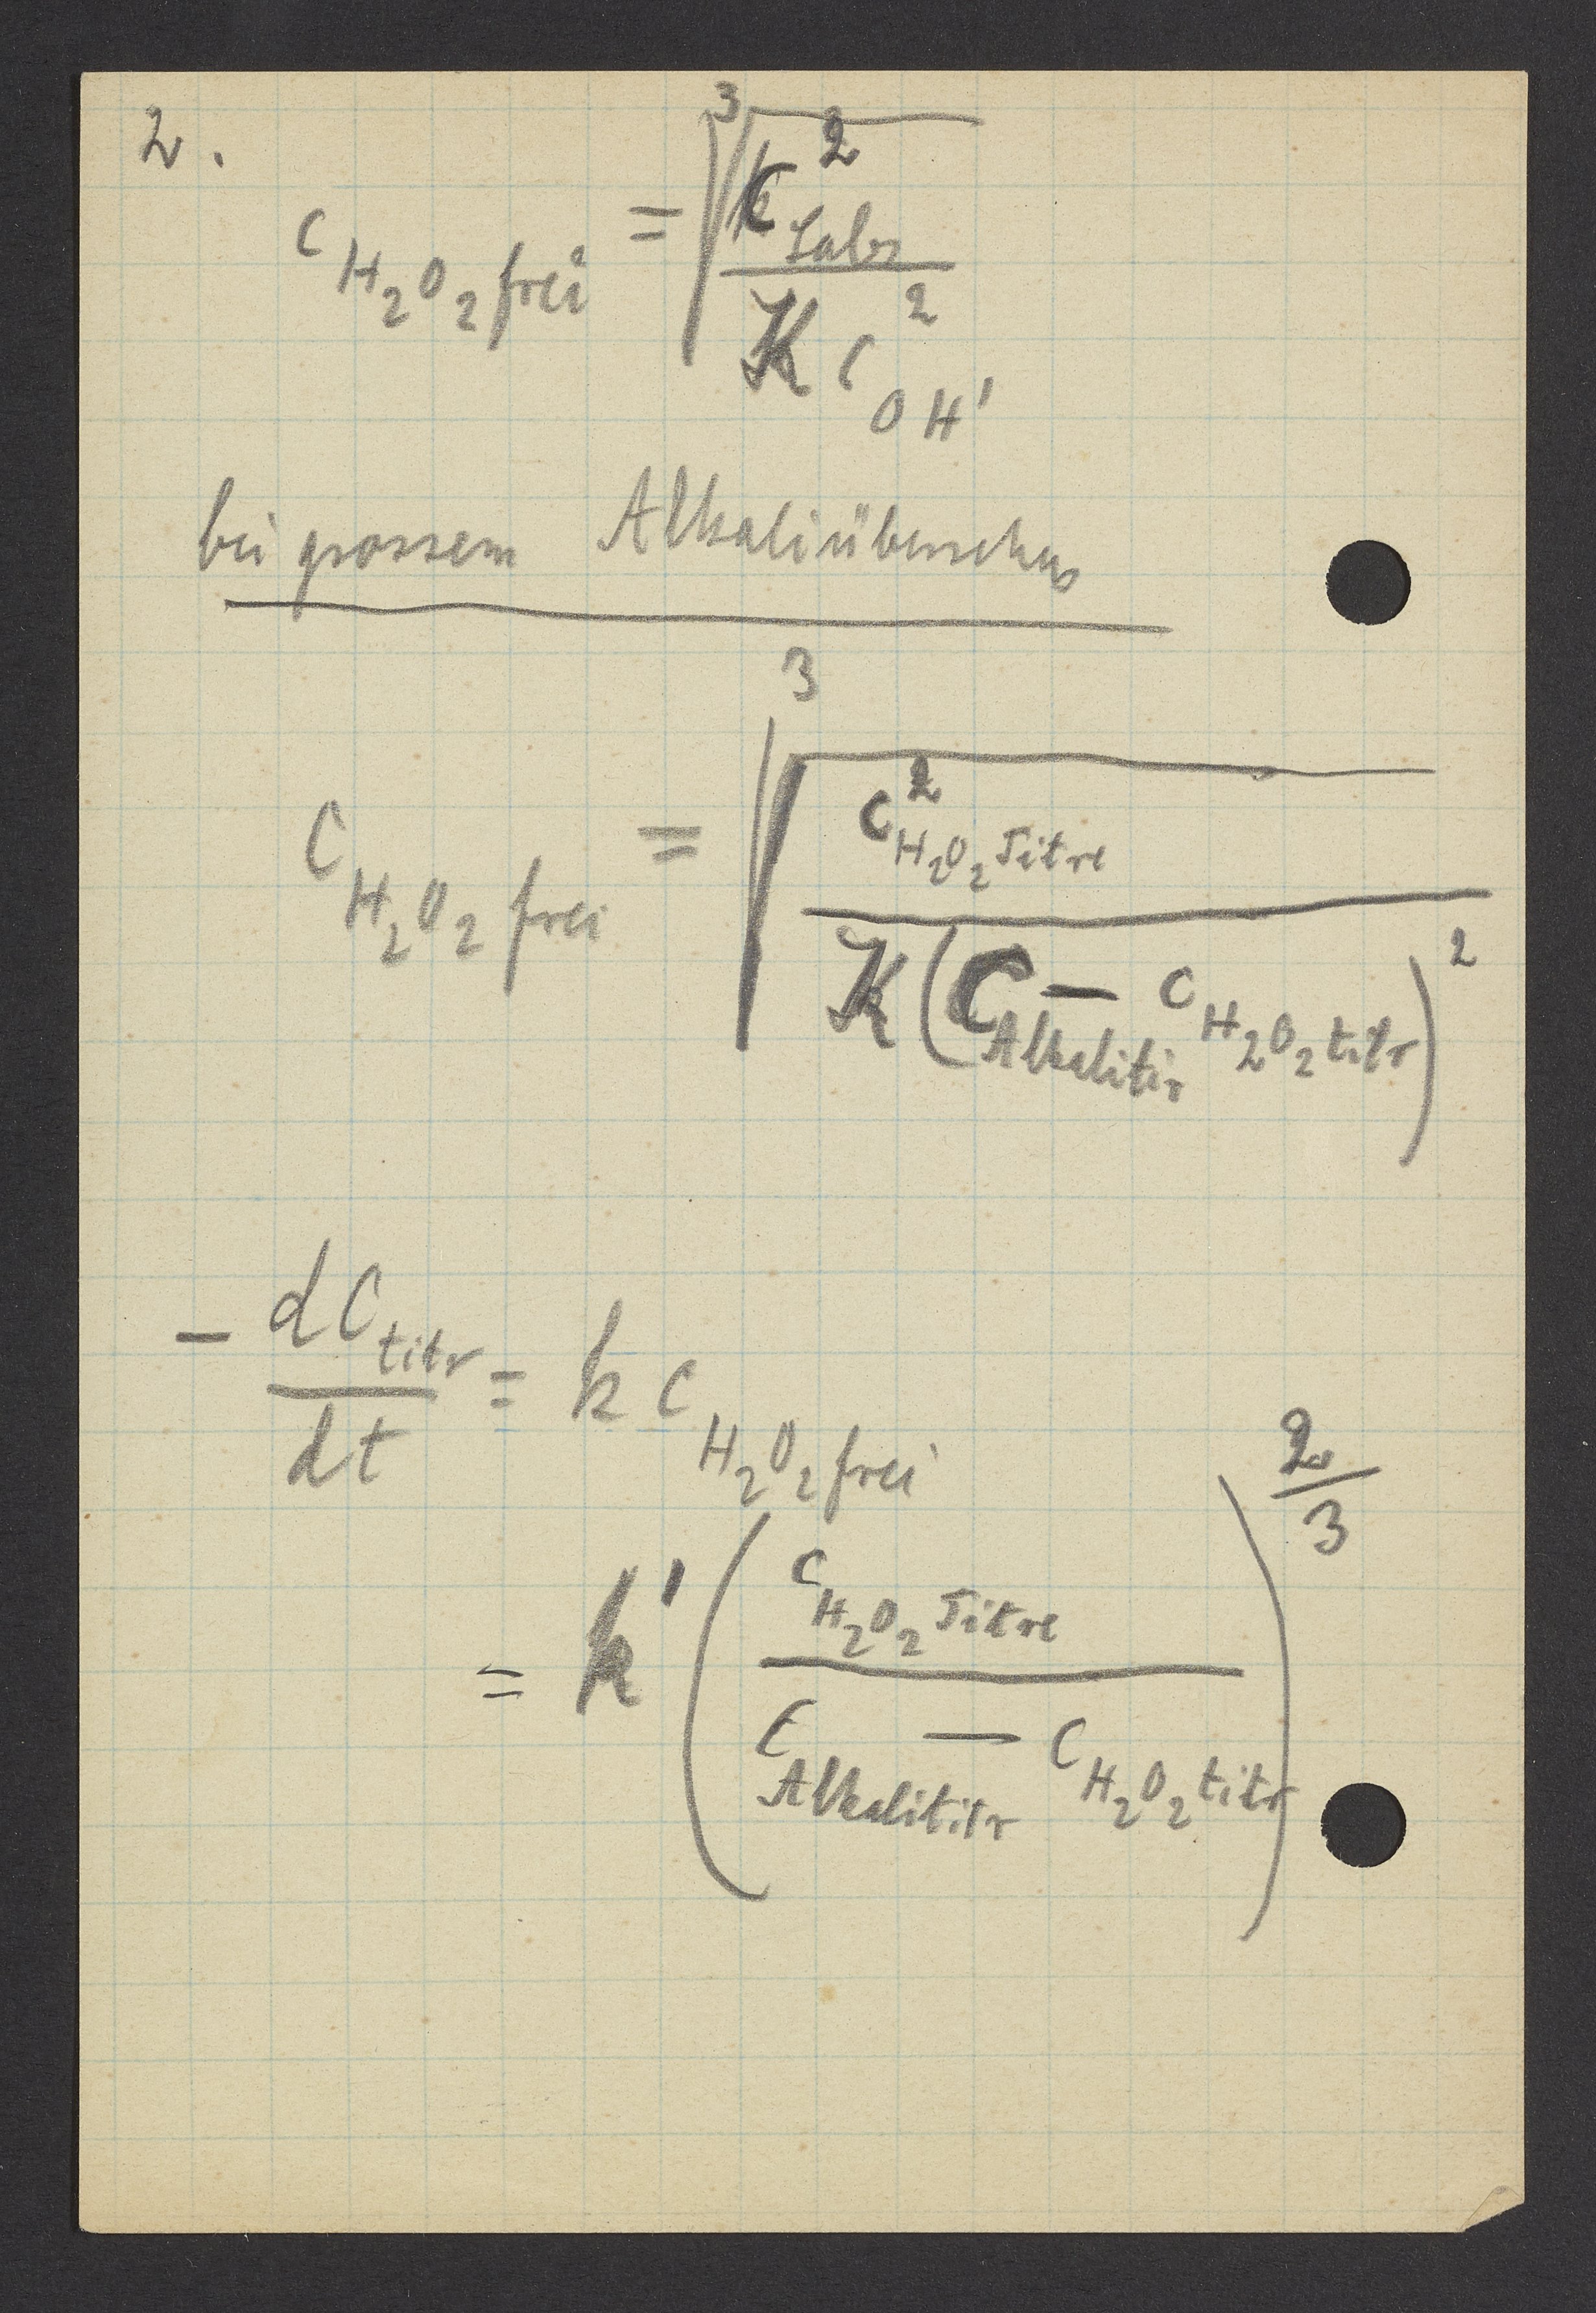 2.
C H₂O₂ frei = ∛(C² Salz / K C² OH')
bei grossem Alkaliüberschus
C H₂O₂ frei = ∛(C² H₂O₂ Titre / K (C Alkalitir − C H₂O₂ titr)²)
− dC titr / dt = k C H₂O₂ frei
= k' (C H₂O₂ Titre / C Alkalititr − C H₂O₂ titr)^2/3